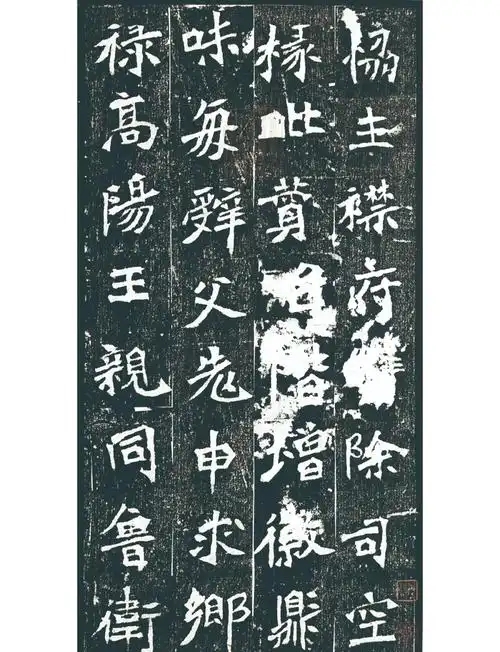 協主襟府除司空
掾增徽鼎
味每辭父先申求鄉
禄高陽王親同魯衛